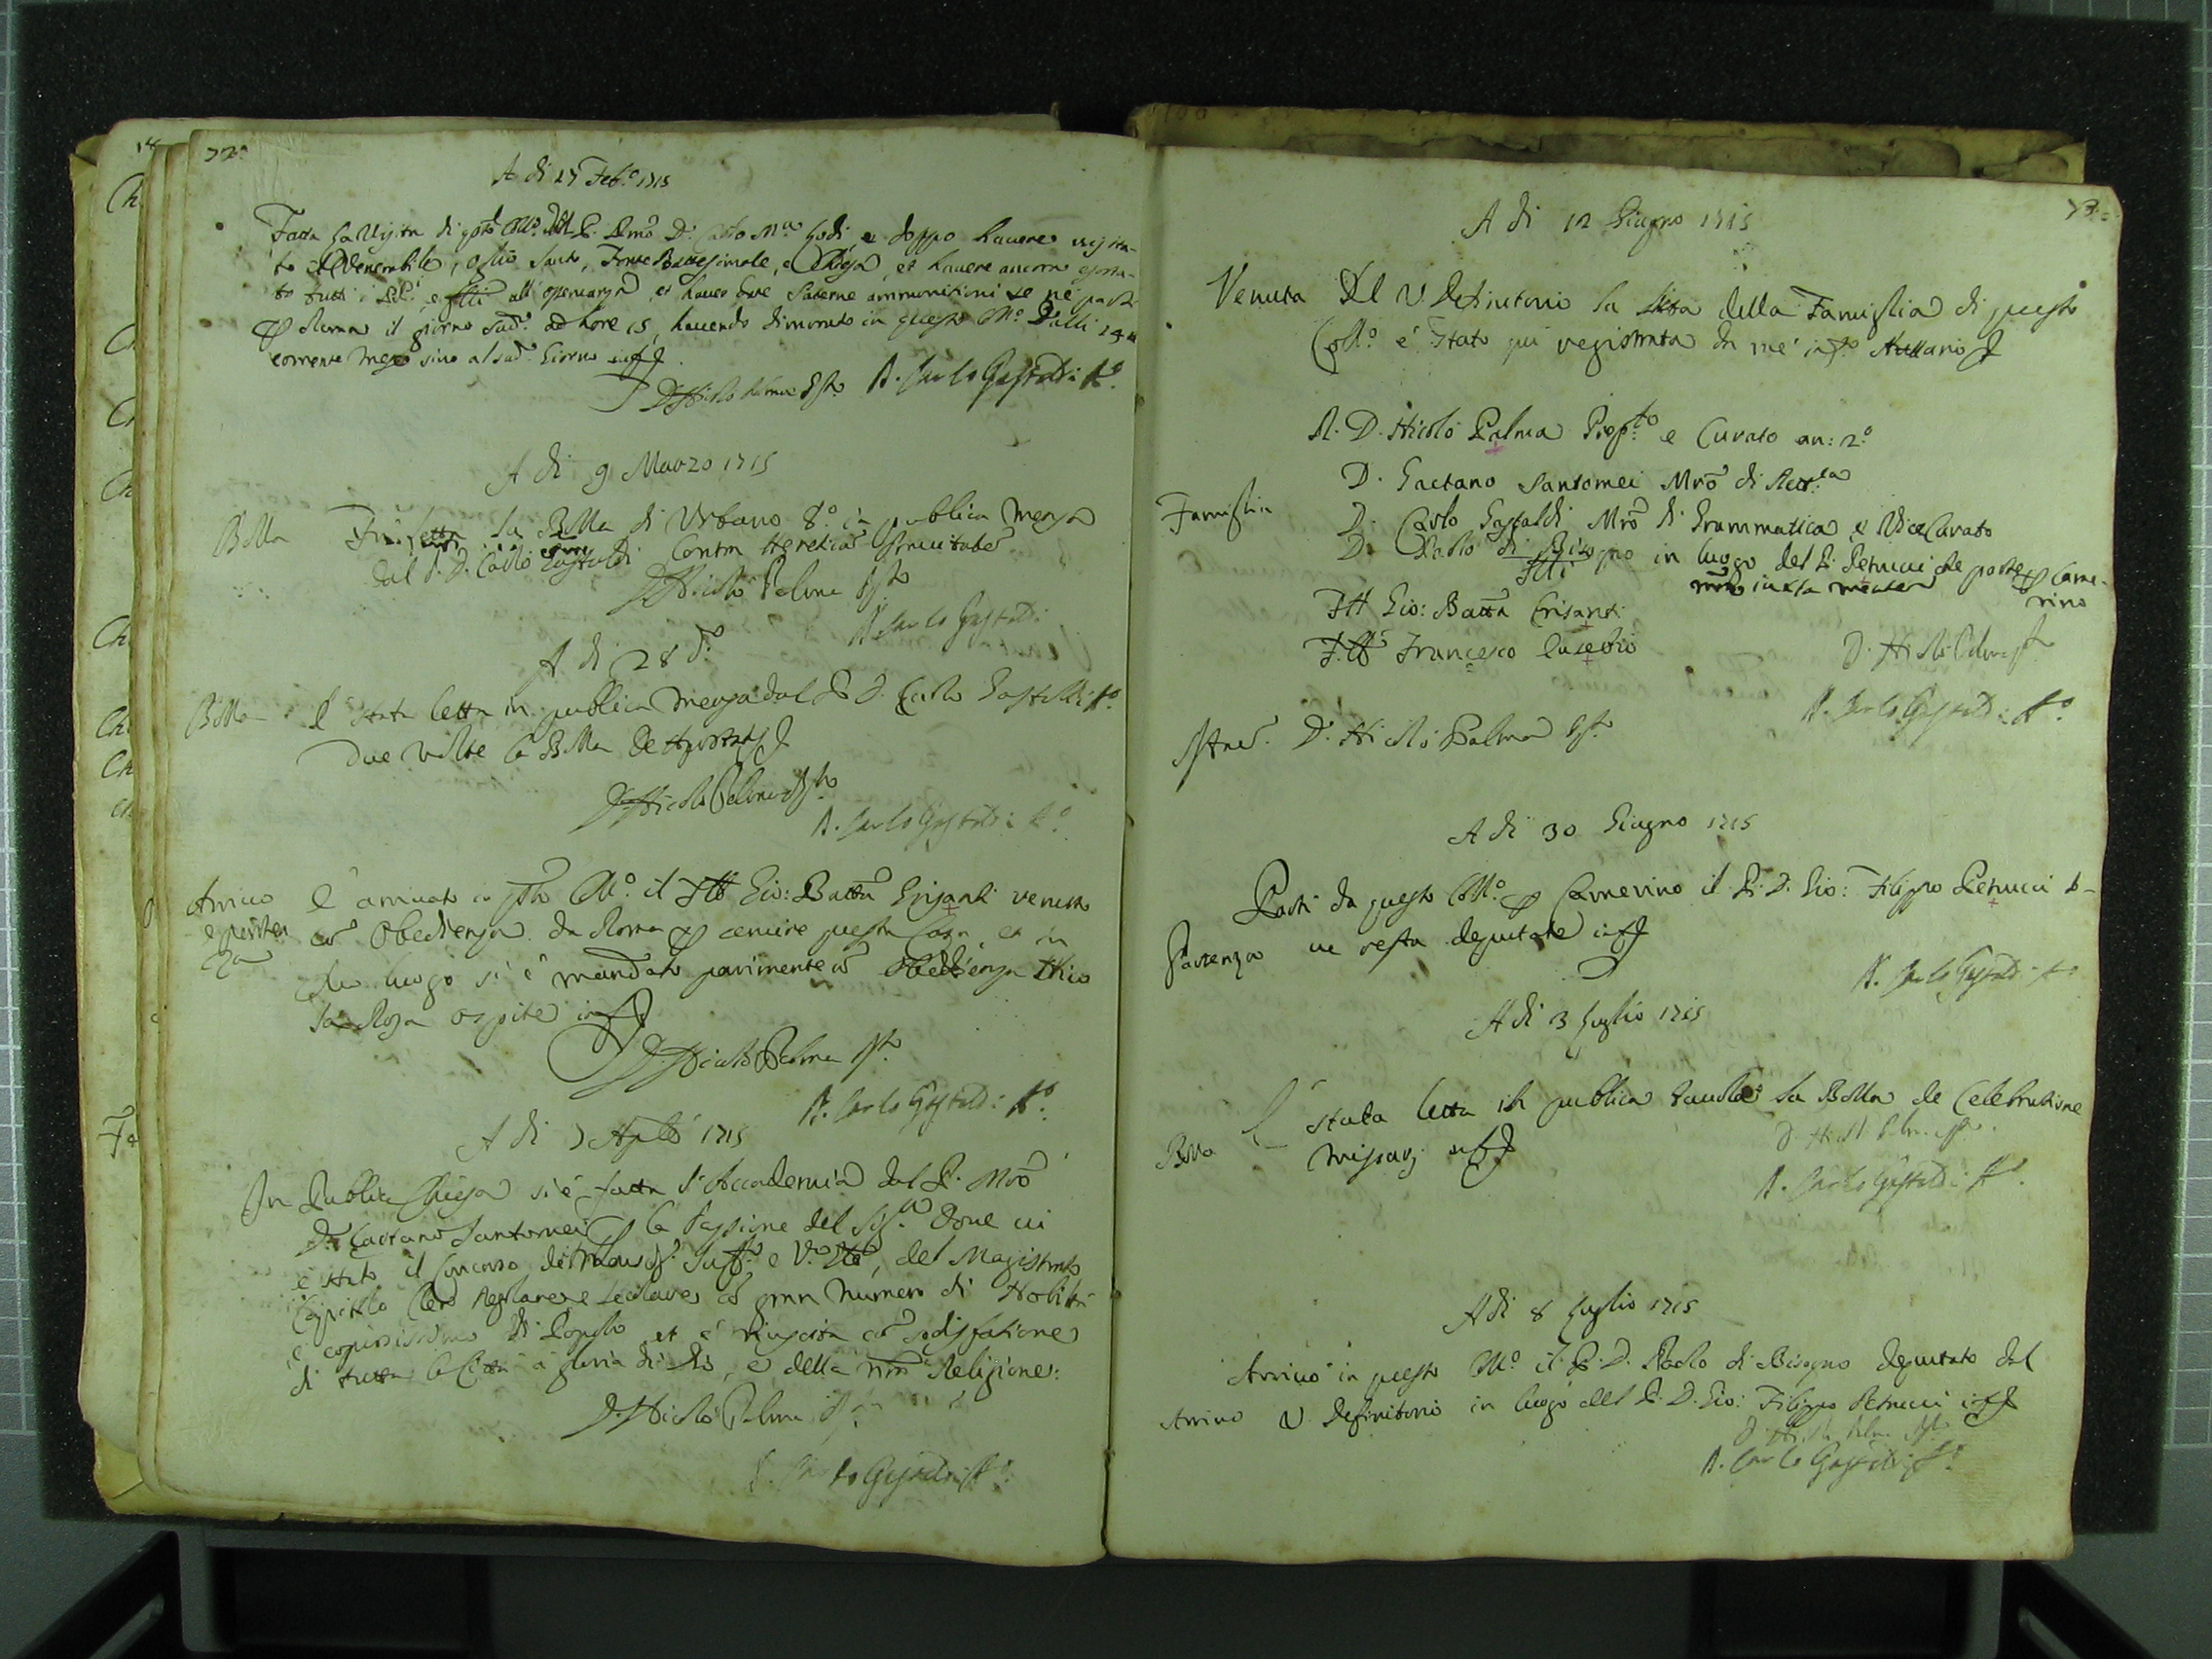 72
A di 27 Feb.o 1715
Fatta la Visita di q.to Coll.o dal P. R.mo D. Carlo M.a Lodi, e doppo havere visita-
to il Venerabile, oglio santo, Fonte Battesimale, e Chiesa, et havere ancora esorta-
to tutti i PP. e flli all' osservanza, et haver date paterne ammonitioni se ne partì
p Roma il giorno sud.o ad hore 15, havendo dimorato in questo Coll.o dalli 24
corrente mese sino al sud.o Giorno
D Nicolò Palma Pp.to D. Carlo Gastaldi A.o
A di 9 Marzo 1715
Bolla Fu letta la Bolla di Urbano 8.o in publica mensa
dal P. D. Carlo Gastaldi Contra Hereticos
D Nicolò Palma Pp.to
D. Carlo Gastaldi
A di 28 d.o
Bolla È stata letta in publica mensa dal P. D. Carlo Gastaldi A.o
due volte la Bolla de Apostatis
D Nicolò Palma Pp.to
D. Carlo Gastaldi A.o
Arrivo È arrivato in q.to Coll.o il Fllo Gio: Batta Grisanti venuto
e parten co Obedienza da Roma p servire questa Casa, et in
za suo luogo si è mandato parimente co Obedienza
la Rosa ospite
D. Nicolò Palma Pp.to
D. Carlo Gastaldi A.o
A di 7 Aple 1715
In Publica Chiesa si è fatta l'Accademia dal P. Mro
D. Gaetano Santomei p la Passione del Sig.re dove vi
è stato il Concorso di Mons.r Suff.o e V.o Gle, del Magistrato
Capitolo Clero Regolare e secolare co gran numero di Nobiltà
e copiosissimo di Popolo et è riuscita co sodisfatione
di tutta la Città à gloria di Dio, e della nra Religione:
D. Nicolò Palma Pp.to
D. Carlo Gastaldi A.o
73
A di 12 Giugno 1715
Venuta dal V. Definitorio la lista della Famiglia di questo
Coll.o è stato qui registrata da me inf.o Attuario
R. D. Nicolò Palma Prop.to e Curato an: 2.o
D. Gaetano Santomei Mro di Rett.ca
Famiglia D. Carlo Gastaldi Mro di Grammatica, e Vice Curato
D. Paolo di Bisogno in luogo del P. Petrucci che parte p Came-
rino
Flli
iuxta mentem
Fll Gio: Batta Crisanti
Fll Francesco Eusebio
D. Nicolò Palma Pp.to
D. Carlo Gastaldi A.o
D. Nicolò Palma Pp.to
A di 30 Giugno 1715
Partì da questo Coll.o p Camerino il P. D. Gio: Filippo Petrucci do-
Partenza ve resta deputato
D. Carlo Gastaldi A.o
A di 3 Luglio 1715
Bolla È stata letta in publica tavola la Bolla de Celebratione
Missarum
D. Nicolò Palma Pp.to
D. Carlo Gastaldi A.o
A di 8 Luglio 1715
Arrivò in questo Coll.o il P. D. Paolo di Bisogno deputato dal
Arrivo V. Definitorio in luogo del P. D. Gio: Filippo Petrucci
D. Nicolò Palma Pp.to
D. Carlo Gastaldi A.o